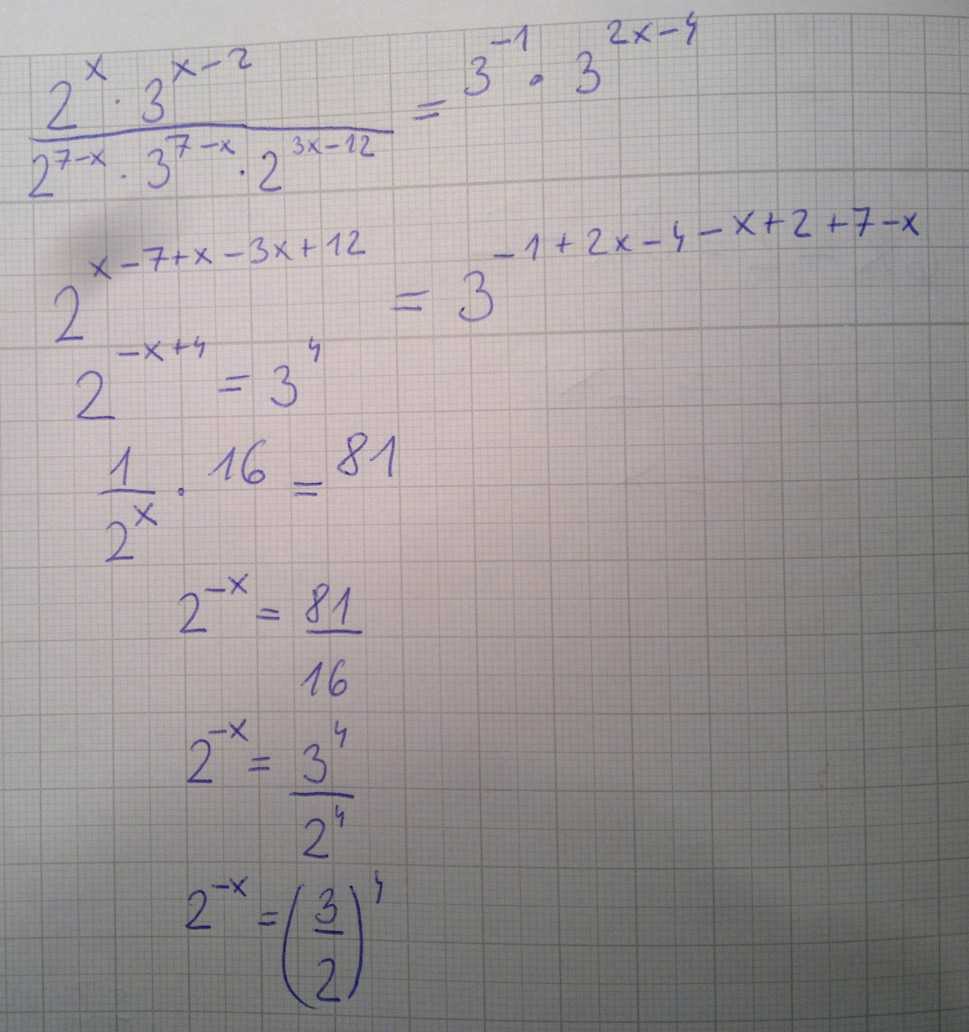 2^x · 3^(x-2) / 2^(7-x) · 3^(7-x) · 2^(3x-12) = 3^(-1) · 3^(2x-4)
2^(x-7+x-3x+12) = 3^(-1+2x-4-x+2+7-x)
2^(-x+4) = 3^4
1/2^x · 16 = 81
2^(-x) = 81/16
2^(-x) = 3^4/2^4
2^(-x) = (3/2)^4